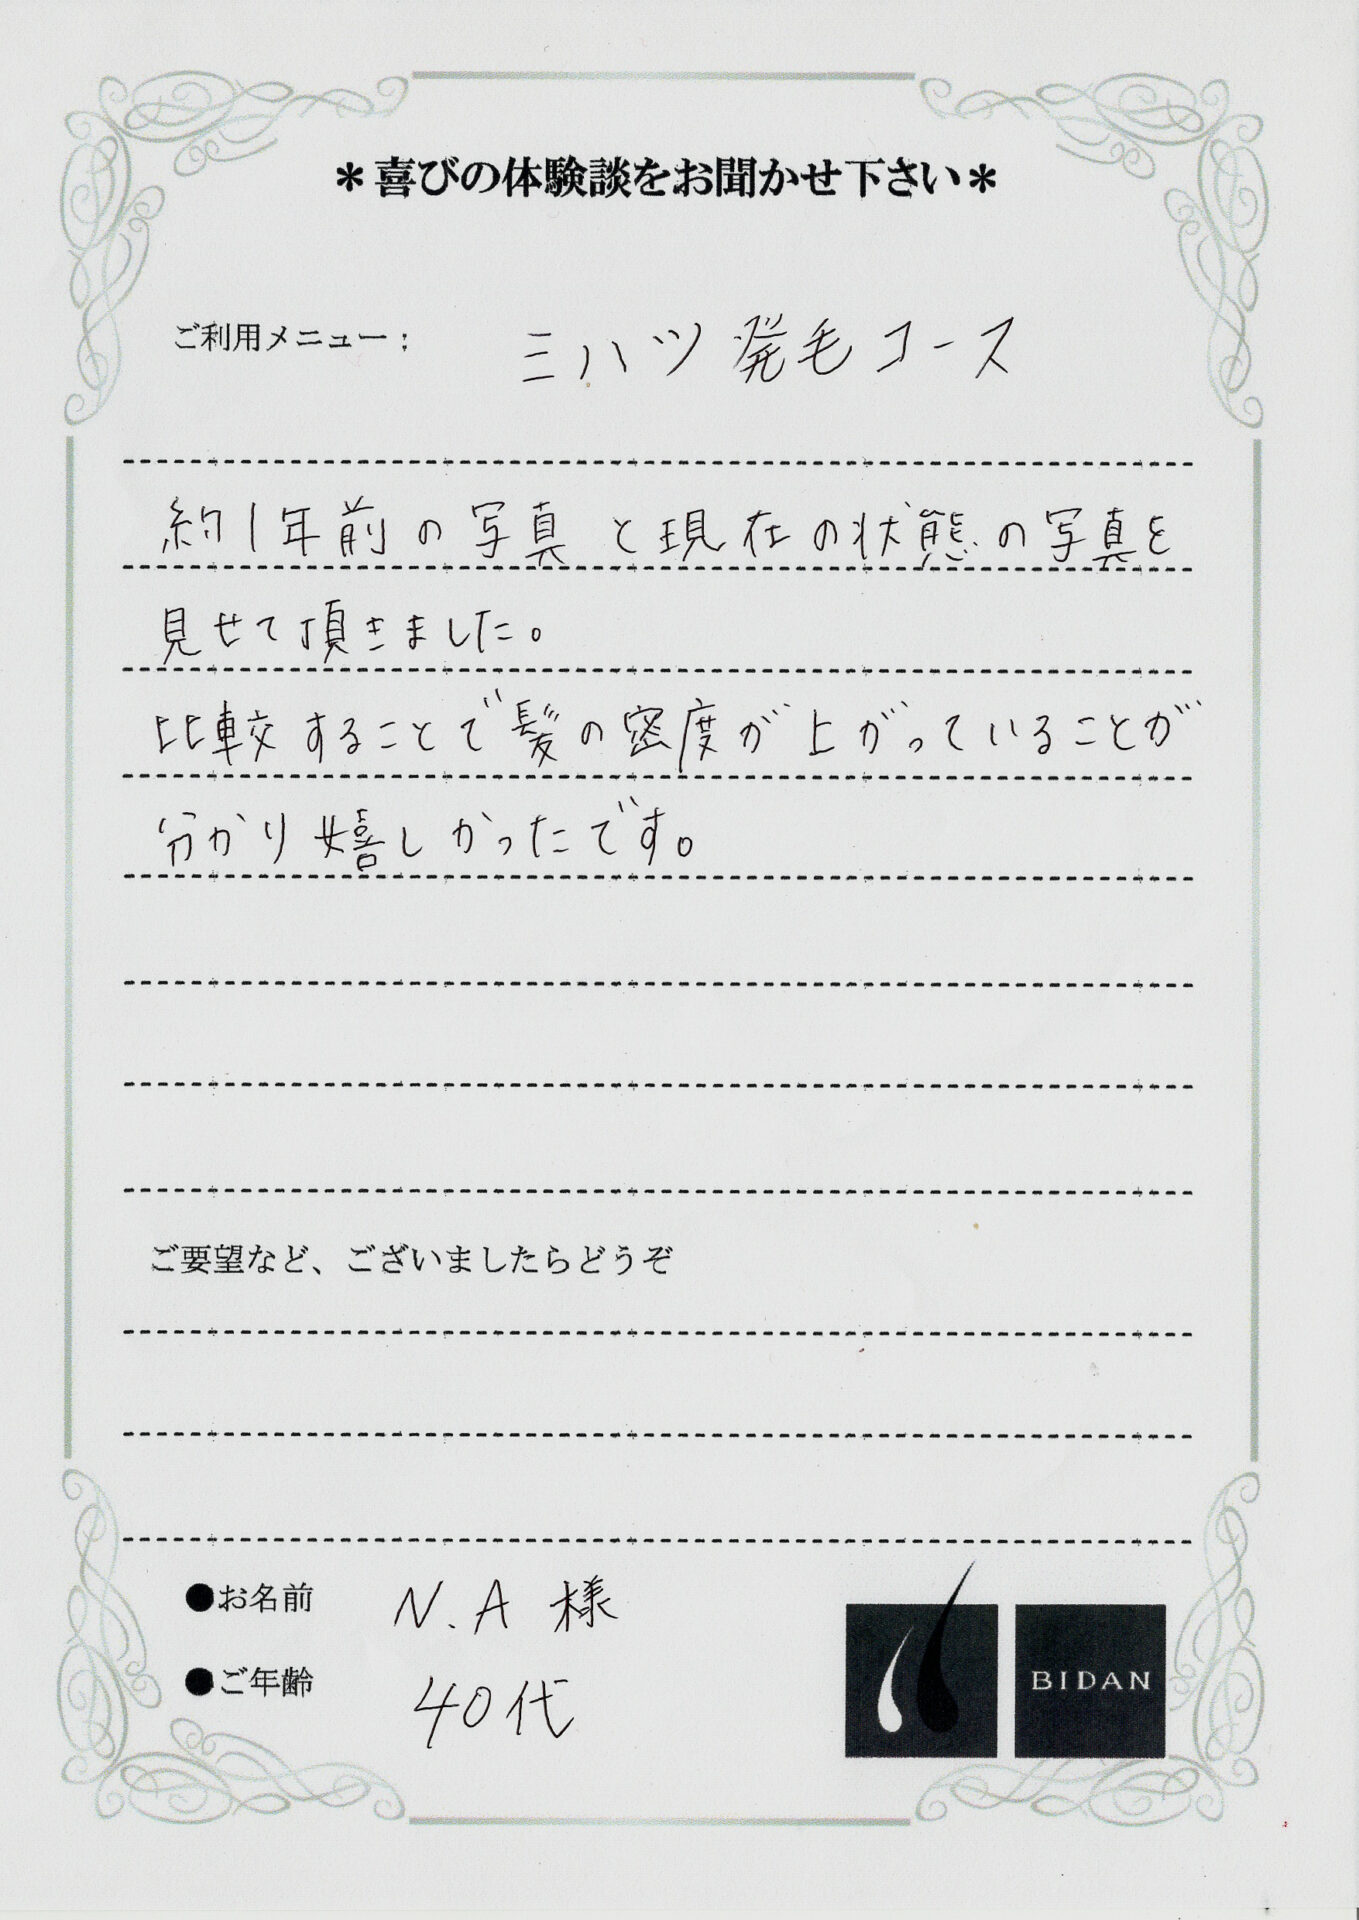 ＊喜びの体験談をお聞かせ下さい＊
ご利用メニュー： ミハツ発毛コース
約1年前の写真と現在の状態の写真を
見せて頂きました。
比較することで髪の密度が上がっていることが
分かり嬉しかったです。
ご要望など、ございましたらどうぞ
●お名前 N.A 様
●ご年齢 40代
BIDAN